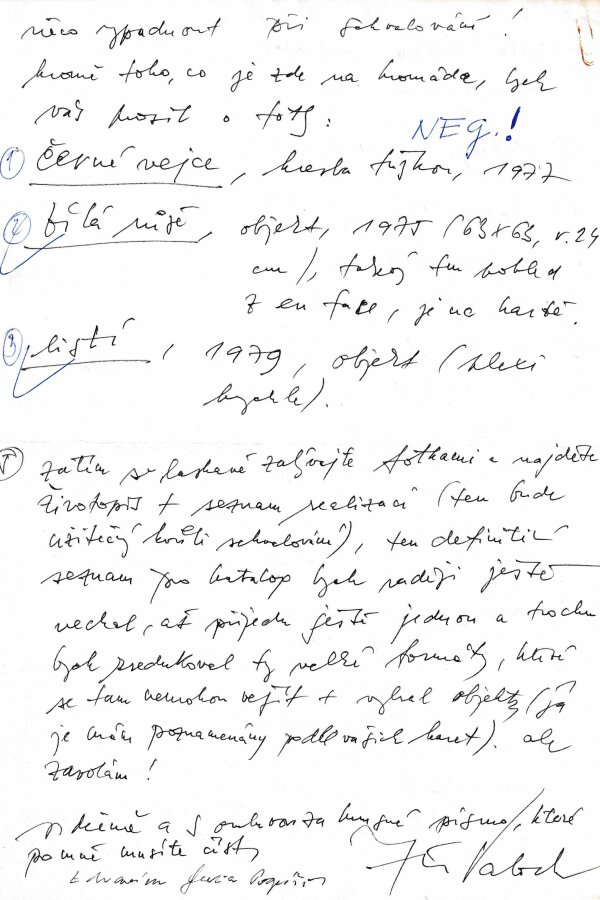 něco vypadnout při schvalování!
kromě toho, co je zde na hromádce, bych
vás prosil o foty:
NEG.!
① černé vejce, kresba tužkou, 1977
② bílá růže, objekt, 1975 (63x63, v.24
cm), takový ten pohled
z en face, je na kartě.
③ listí, 1979, objekt (plexi
krychle).
zatím se laskavě zabývejte fotkami a najděte
životopis + seznam realizací (ten bude
užitečný kvůli schvalování), ten definitivní
seznam pro katalog bych raději ještě
nechal, až přijedu ještě jednou a trochu
bych zredukoval ty velké formáty, které
se tam nemohou vejít + vybral objekty (já
je mám poznamenány podle vašich karet). ale
zavolám!
vděčně a s omluvou za hnusné písmo, které
pomně musíte číst,
Jiří Valoch